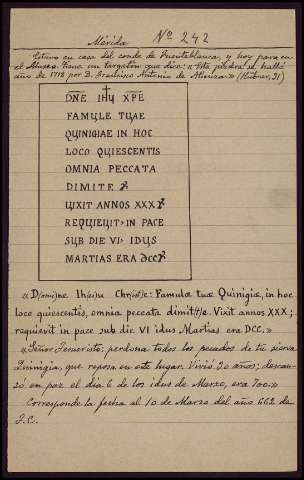 Mérida Nº 242
Estuvo en casa del conde de Fuenteblanca, y hoy para en
el Museo. Tiene un targetón que dice: «Esta piedra se halló
año de 1718 por D. Francisco Antonio de (Hübner, 31)
DNE IHU XPE
FAMULE TUAE
QUINIGIAE IN HOC
LOCO QUIESCENTIS
OMNIA PECCATA
DIMITE
UIXIT ANNOS XXX
REQUIEUIT IN PACE
SUB DIE VI IDUS
MARTIAS ERA DCC
«D(omi)ne Ih(es)u Chr(ist)e: Famulæ tuæ Quinigiæ, in hoc
loco quiescentis, omnia peccata dimit(t)e. Vixit annos XXX;
requievit in pace sub die VI idus Martias era DCC.»
«Señor Jesucristo; perdona todos los pecados de tu sierva
Quinigia, que reposa en este lugar. Vivió 30 años; descan-
só en paz el dia 6 de los idus de Marzo, era 700.»
Corresponde la fecha al 10 de Marzo del año 662 de
J.C.